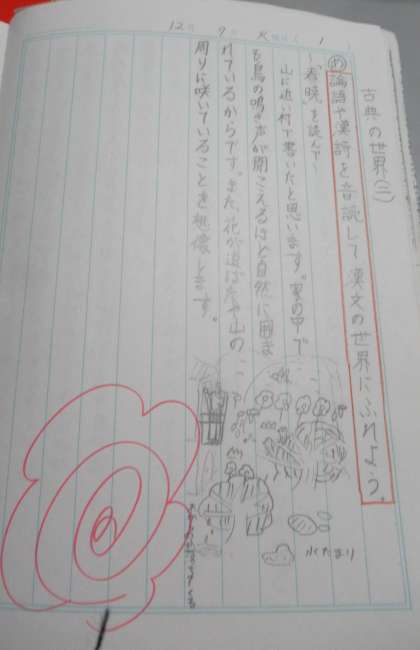 12月9日火曜日(1)
古典の世界(二)
め 論語や漢詩を音読して漢文の世界にふれよう。
〜「春暁」を読んで〜
山に近い村で書いたと思います。家の中で
も鳥の鳴き声が聞こえるほど自然に囲ま
れているからです。また、花が道ばたや山の
周りに咲いていることを想像します。
水たまり